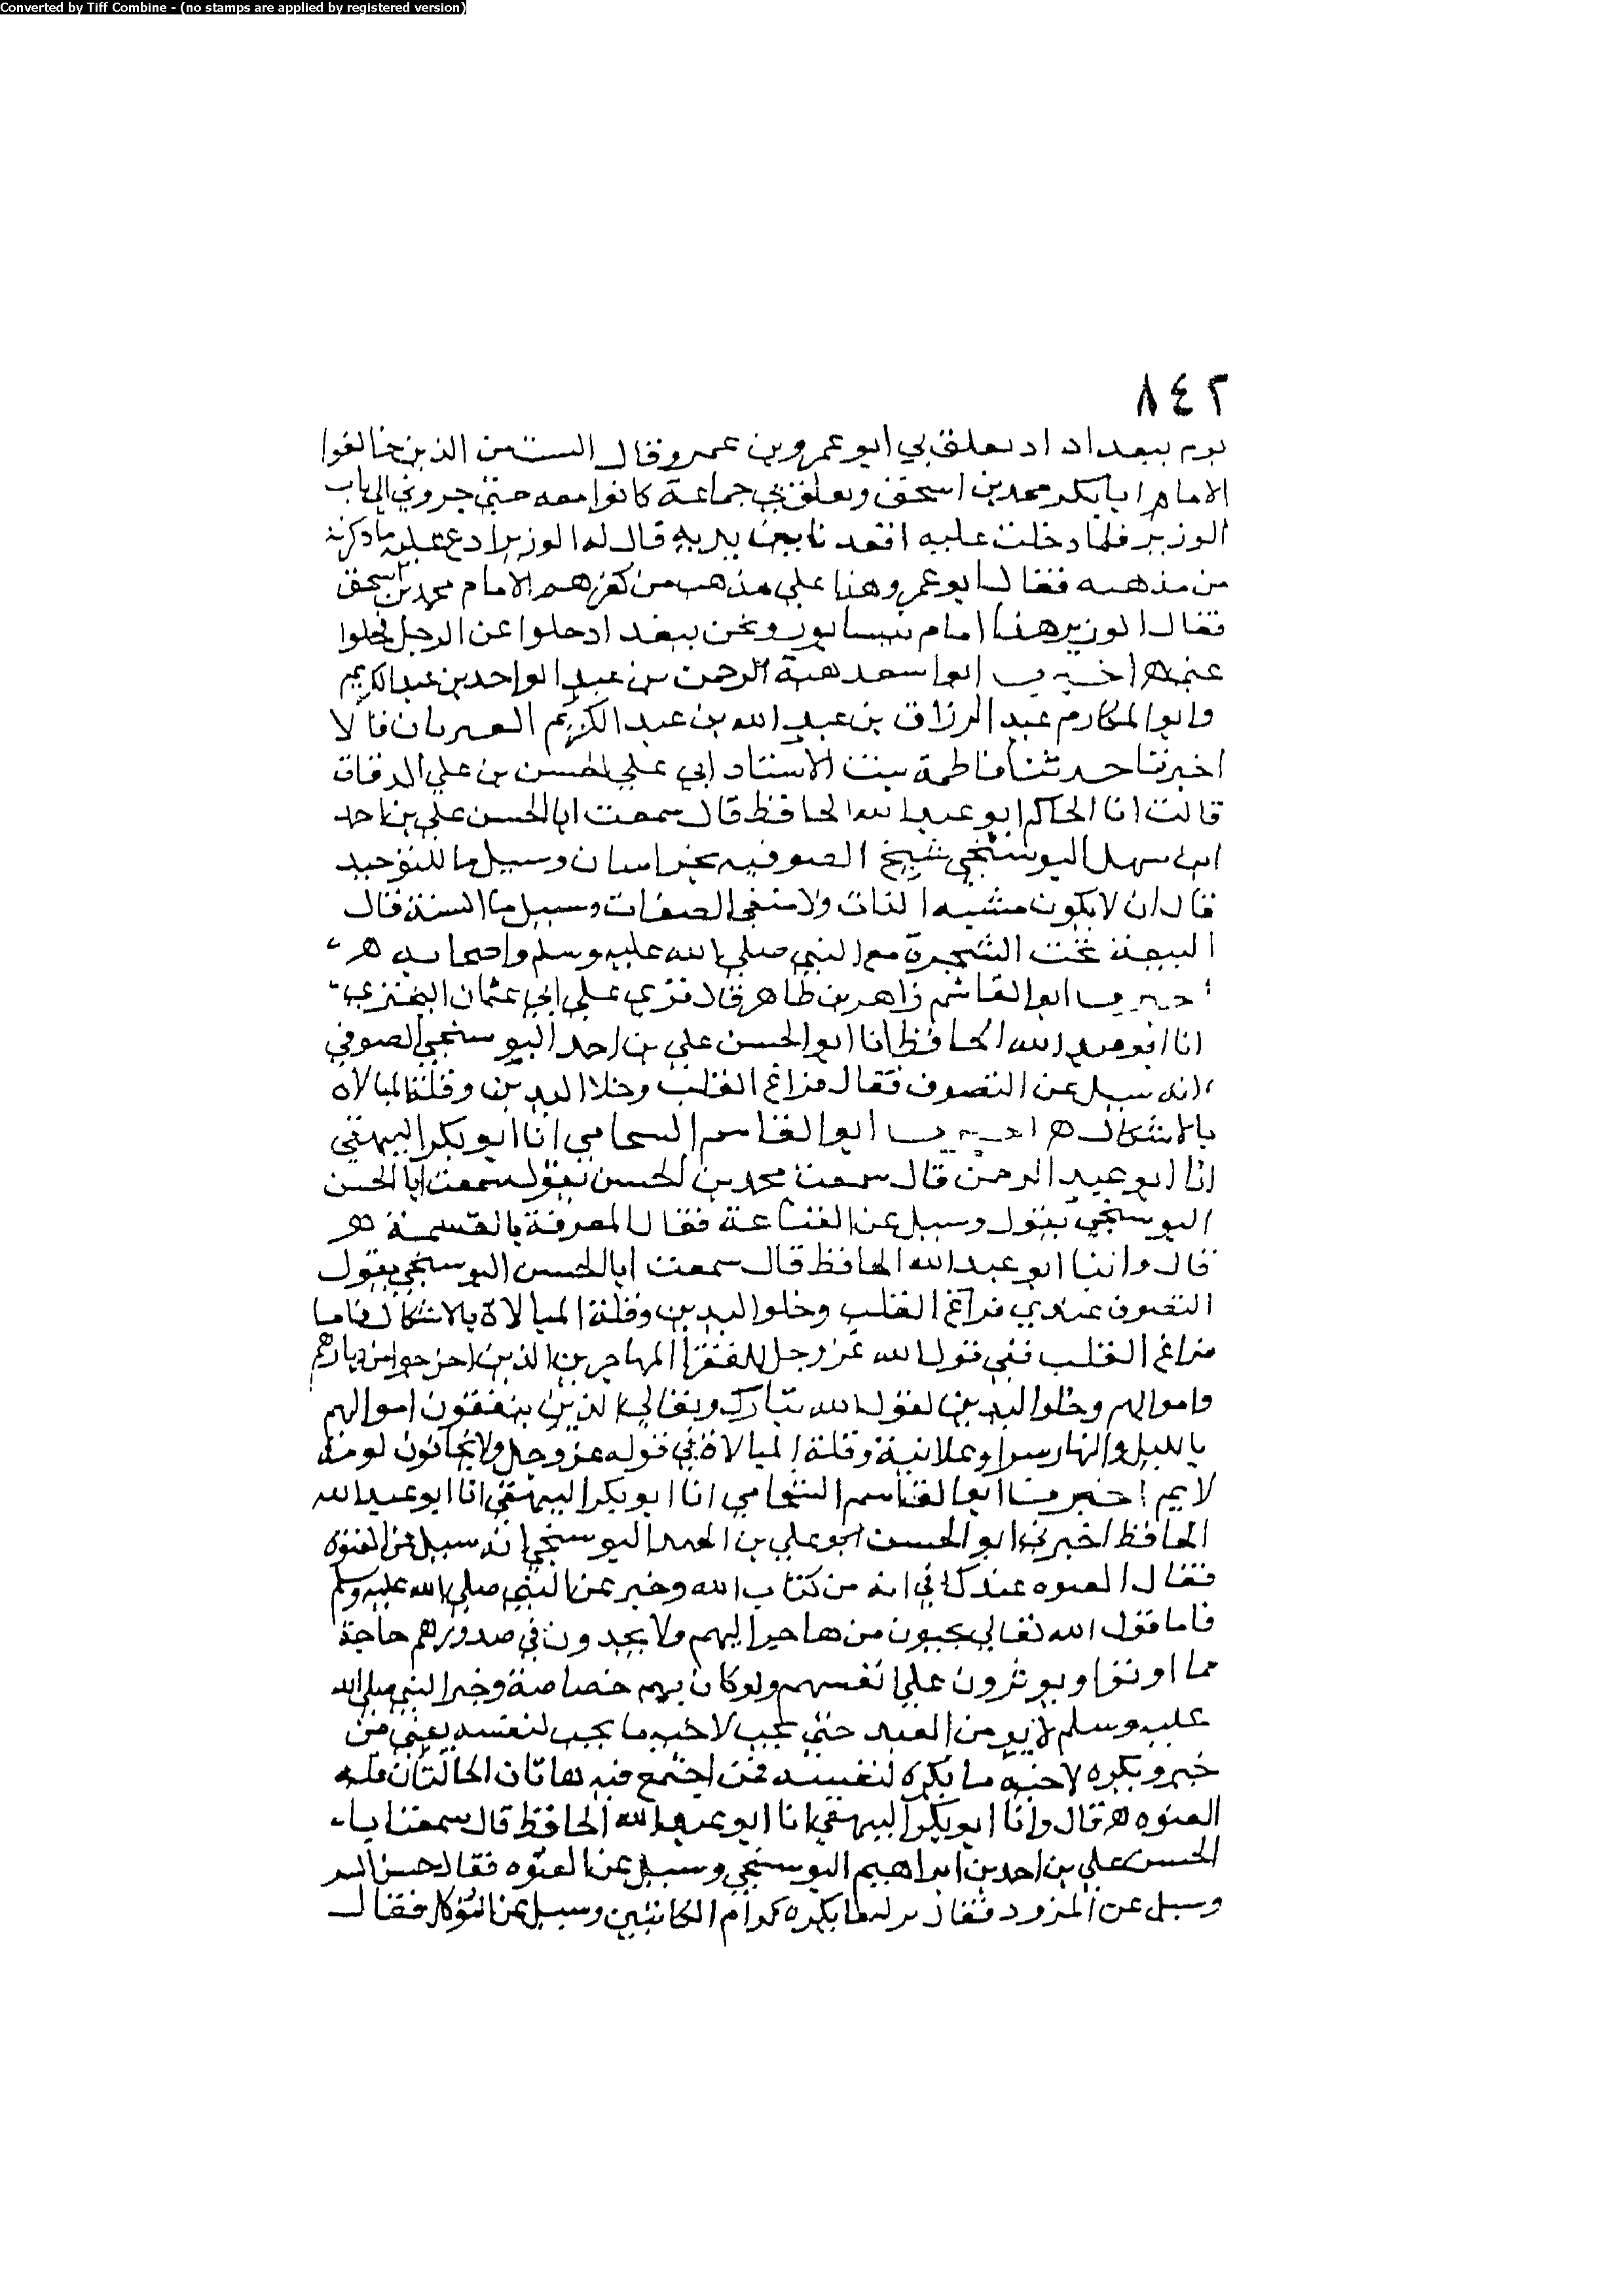 Converted by Tiff Combine - (no stamps are applied by registered version)
٨٤٢
يوم ببغداد اذ تعلق بي ابو عمرو بن عمرو قال الست من الذين خالفوا
الامام ابا بكر محمد بن اسحق وتعلق بي جماعة كانوا معه حتى جروني الى باب
الوزير فلما دخلت عليه اقعدنا بين يديه قال له الوزير ادع عليه ما ذكرته
من مذهبه فقال ابو عمرو هذا على مذهب من كفرهم الامام محمد بن اسحق
فقال الوزير هذا امام نيسابور ونحن ببغداد خلوا عن الرجل فخلوا
عني ه اخبرنا ابوا سعد هبة الرحمن بن عبد الواحد بن عبد الكريم
وابو المكارم عبد الرزاق بن عبد الله بن عبد الكريم قالا
اخبرتنا جدتنا فاطمة بنت الاستاد ابي علي الحسن بن علي الدقاق
قالت انا الحاكم ابو عبد الله الحافظ قال سمعت ابا الحسن علي بن احمد
ابن سهل البوسنجي شيخ الصوفيه بخراسان وسيل ما التوحيد
فقال ان لا يكون مشبه الذات ولا منفي الصفات وسيل ما السنة قال
البيعة تحت الشجرة مع النبي صلى الله عليه وسلم واصحابه ه
اخبرنا ابوا القاسم زاهر بن طاهر قال قري علي ابي عثمان البحتري
انا ابو عبد الله الحافظ انا ابو الحسن علي بن احمد البوسنجي الصوفي
انه سيل عن التصوف فقال فراغ القلب وخلا اليدين وقلة المبالاه
بالاشكال ه اخبرنا ابوا القاسم الشحامي انا ابو بكر البيهقي
انا ابو عبد الرحمن قال سمعت محمد بن الحسن يقول سمعت ابا الحسن
البوسنجي يقول وسيل عن القناعة فقال المعرفة بالقسمة ه
قال وانبا ابو عبد الله الحافظ قال سمعت ابا الحسن البوسنجي يقول
التصوف عندي فراغ القلب وخلو اليدين وقلة المبالاة بالاشكال فاما
فراغ القلب ففي قول الله عز وجل للفقرا المهاجرين الذين اخرجوا من ديارهم
واموالهم وخلوا اليدين لقول الله تبارك وتعالى الذين ينفقون اموالهم
بالليل والنهار سرا وعلانية وقلة المبالاة في قوله عز وجل ولا يخافون لومة
لايم اخبرنا ابوا القاسم الشحامي انا ابو بكر البيهقي انا ابو عبد الله
الحافظ اخبرني ابو الحسن علي بن احمد البوسنجي انه سيل عن الفتوه
فقال الفتوه عندك في اية من كتاب الله وخبر عن النبي صلى الله عليه وسلم
فاما قول الله تعالى يحبون من هاجر اليهم ولا يجدون في صدورهم حاجة
مما اوتوا ويوثرون على انفسهم ولو كان بهم خصاصة وخبر النبي صلى الله
عليه وسلم لا يومن العبد حتى يحب لاخيه ما يحب لنفسه يعني من
خير ويكره لاخيه ما يكره لنفسه فمن اجتمع فيه هاتان الحالتان فله
الفتوه ه قال وانا ابو بكر البيهقي انا ابو عبد الله الحافظ قال سمعت ابا
الحسن علي بن احمد بن ابراهيم البوسنجي وسيل عن الفتوه فقال حسن السر
وسيل عن المروه فقال ترك ما يكره كرام الكاتبين وسيل عن التوكل فقال